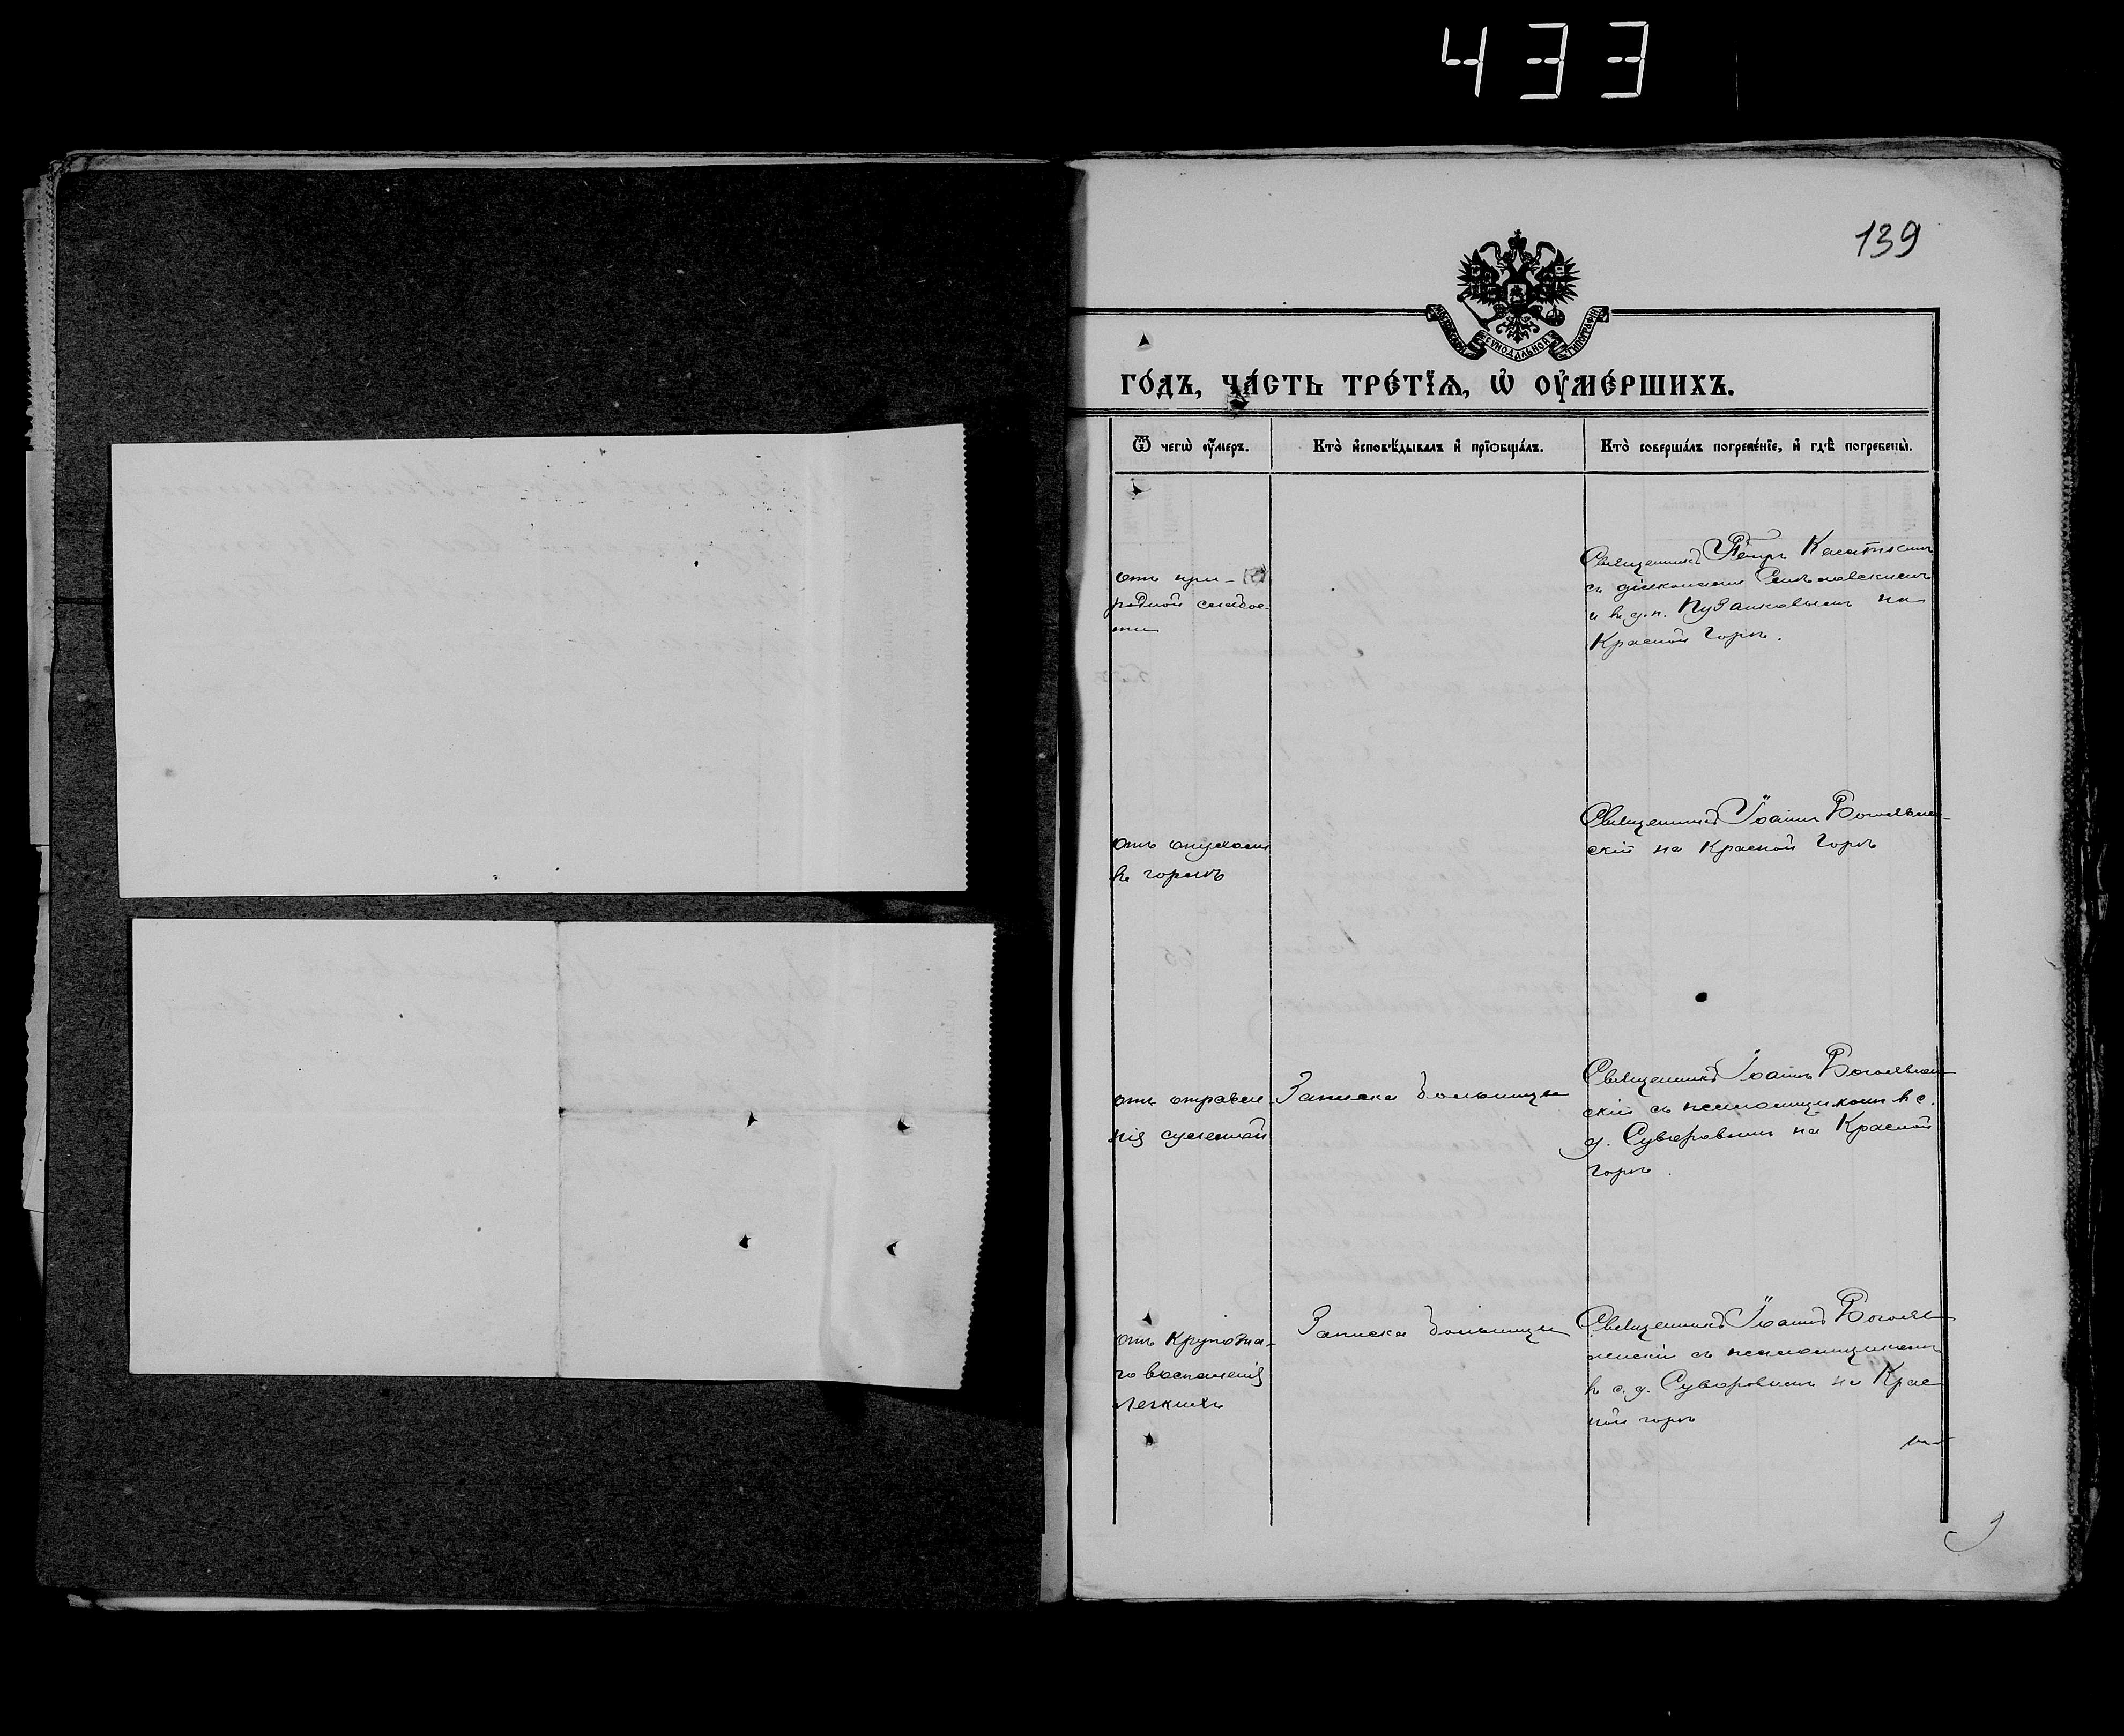 433
139
МОСКОВСКОЙ СѴНОДАЛЬНОЙ ТѴПОГРАФІИ
ГО́ДЪ, ЧА́СТЬ ТРЕ́ТІѦ, Ѡ҆ ОУ҆МЕ́РШИХЪ.
Ѿ чегѡ̀ оу҆́меръ.
Кто̀ и҆сповѣ́дывалъ и҆ прїѻбща́лъ.
Кто̀ соверша́лъ погребе́нїе, и҆ гдѣ̀ погребены̀.
отъ при-
родной слабос-
ти
Священникъ Петръ
съ діакономъ
и в. д. п. Пузанковымъ на
Красной Горѣ.
отъ опухоли
въ горлѣ
Священникъ Іоаннъ Богоявлен-
скій на Красной Горѣ
отъ отравле
нія сулемой
Записка больницы
Священникъ Іоаннъ Богоявлен-
скій съ псаломщикомъ в с.
д. Суворовымъ на Красной
горѣ.
отъ крупозна-
го воспаленія
легкихъ
Записка больницы
Священникъ Іоаннъ Богояв-
ленскій съ псаломщикомъ
в с. д. Суворовымъ на Крас
ной горѣ